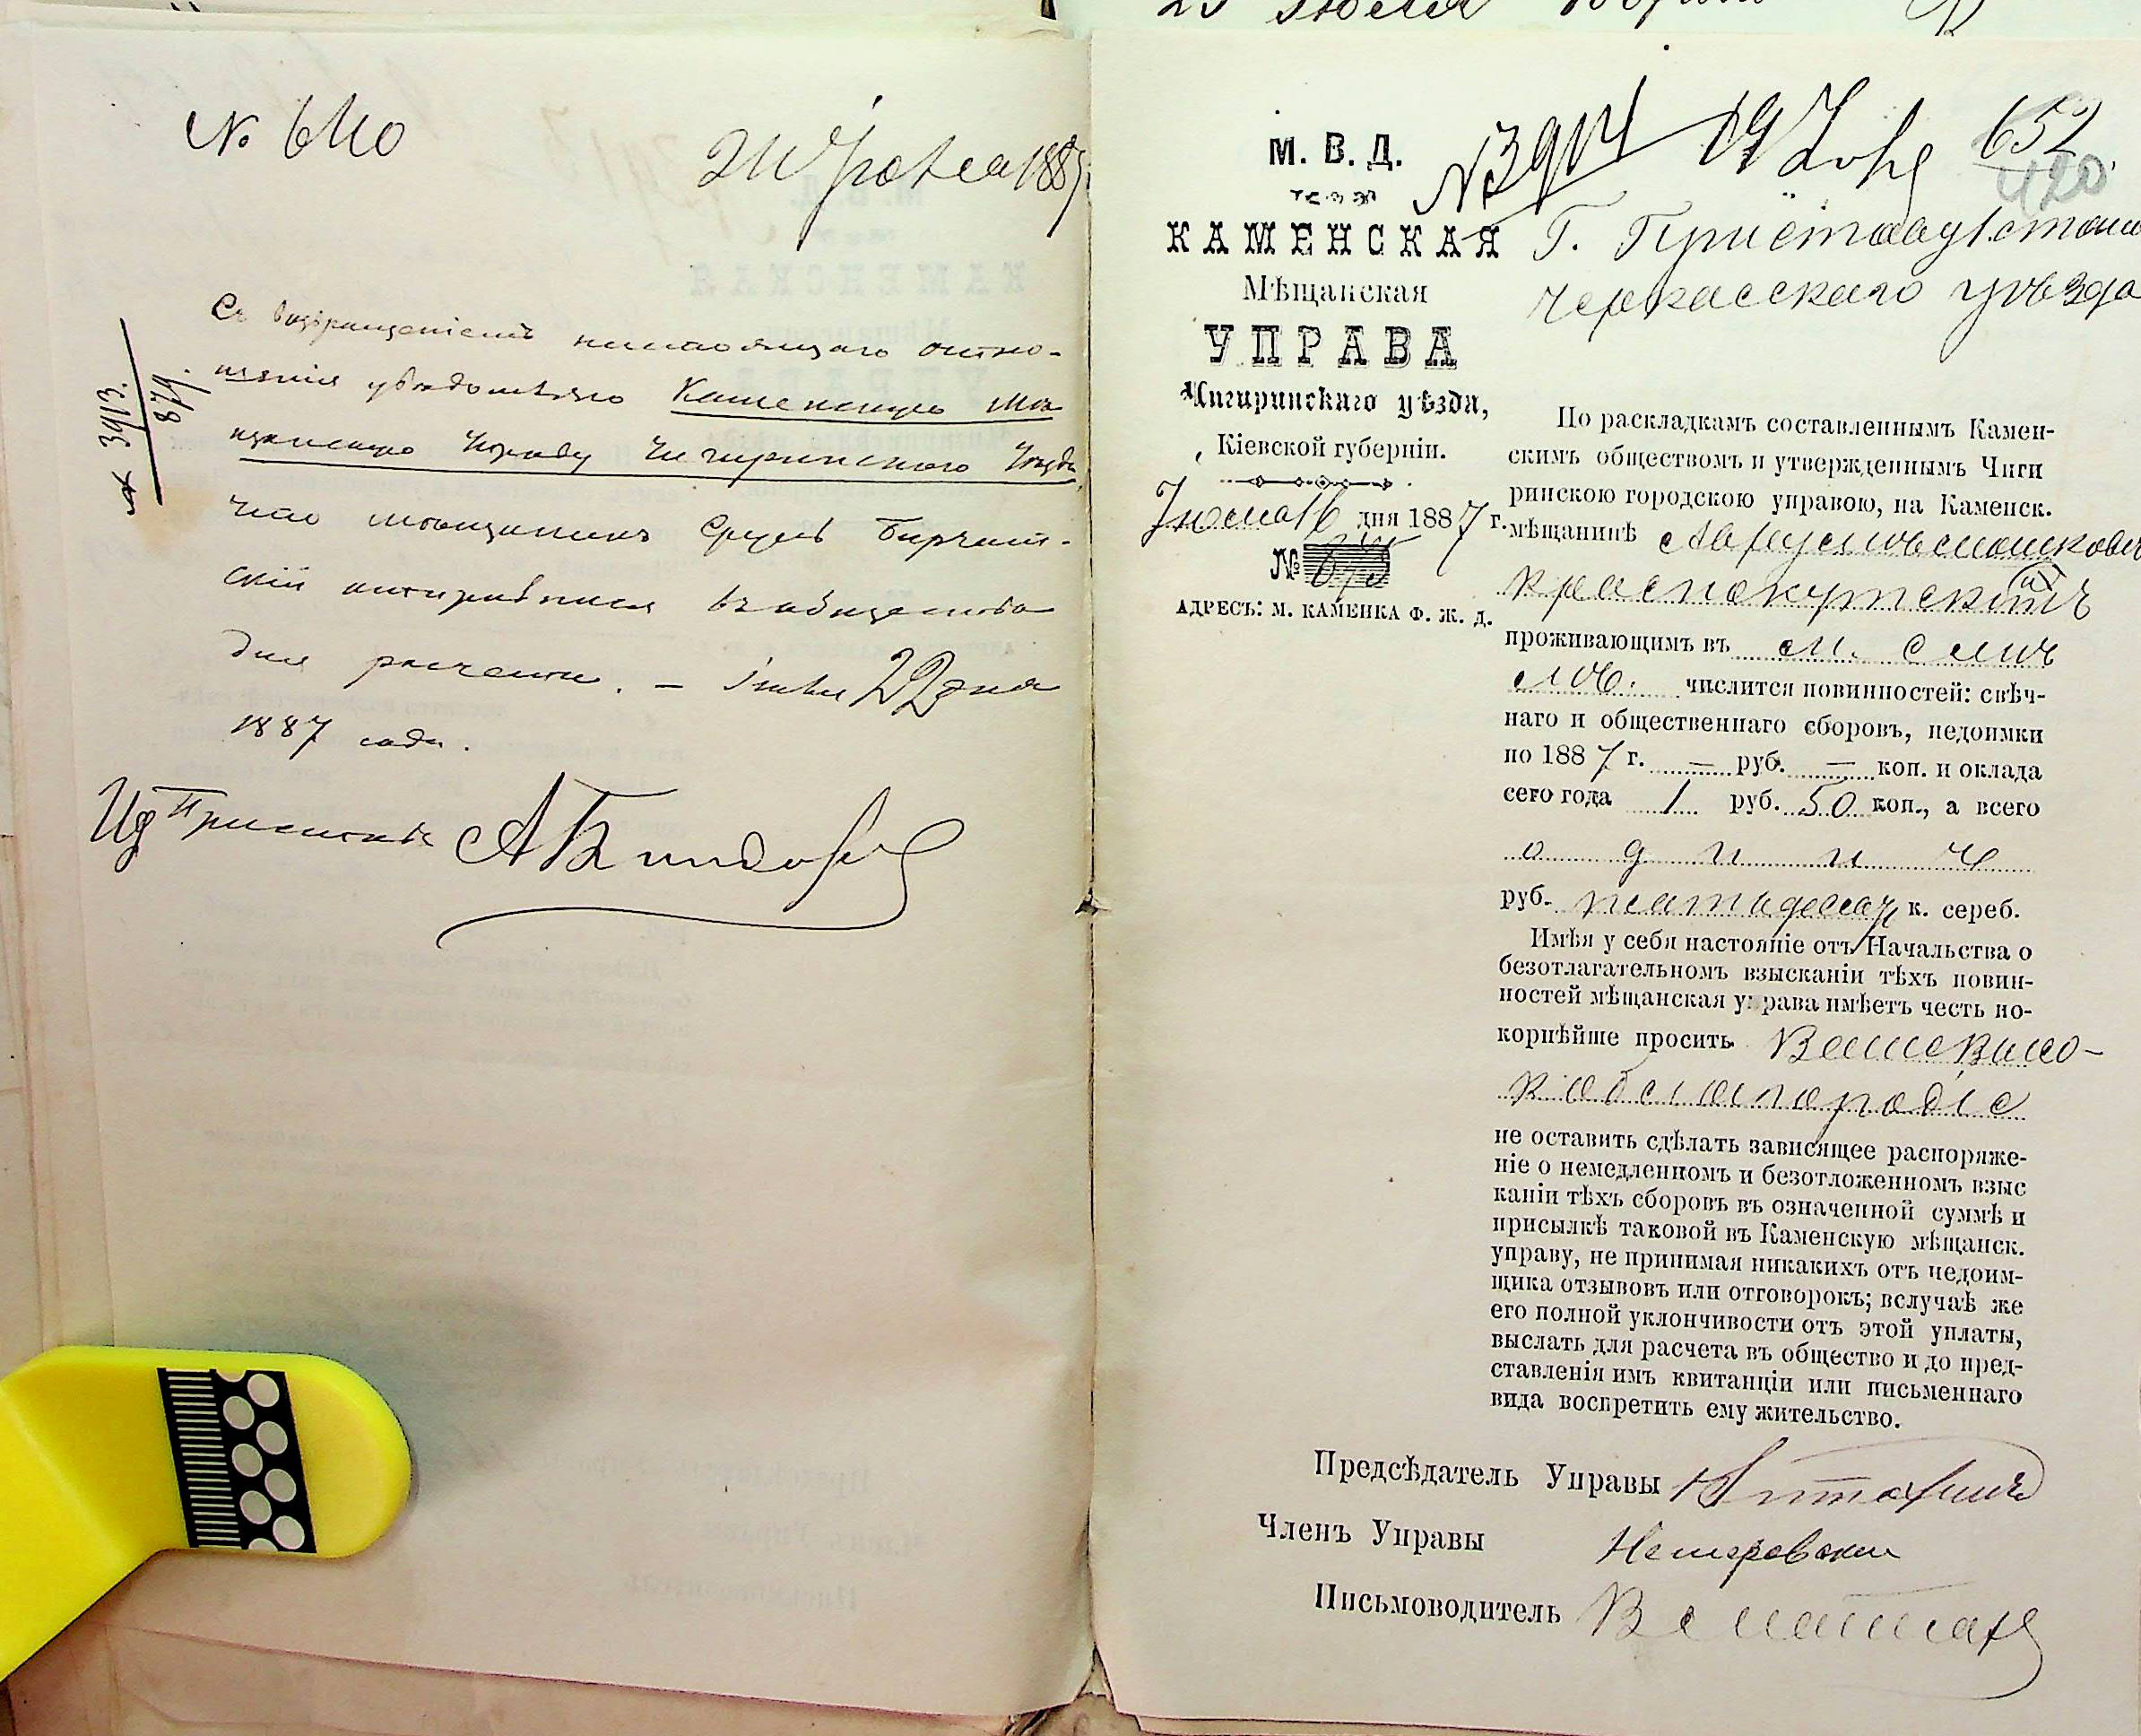 23 Июля
№ 6110
Съ возвращеніемъ настоящаго отно-
шенія увѣдомляю Каменскую Мѣ
щанскую Управу Чигиринскаго Уѣзда,
что мѣщанинъ Сруль
скій отправился въ общество
для расчета. – Іюля 22 дня
1887 года.
№ 3913.
879.
Ид
М. В. Д.
КАМЕНСКАЯ
Мѣщанская
УПРАВА
Чигиринскаго уѣзда,
Кіевской губерніи.
Іюля 16 дня 1887 г.
№
АДРЕСЪ: М. КАМЕНКА Ф. Ж. Д.
652
420
Г. Приставу 1 стана
Черкасскаго уѣзда
По раскладкамъ составленнымъ Камен-
скимъ обществомъ и утвержденнымъ Чиги
ринскою городскою управою, на Каменск.
мѣщанинѣ
Краснокутскомъ
проживающимъ въ м. Смѣ
лѣ. числится повинностей: свѣч-
наго и общественнаго сборовъ, недоимки
по 1887 г. — руб. — коп. и оклада
сего года 1 руб. 50 коп., а всего
одинъ
руб. пятьдесят к. сереб.
Имѣя у себя настояніе отъ Начальства о
безотлагательномъ взысканіи тѣхъ повин-
ностей мѣщанская управа имѣетъ честь по-
корнѣйше просить Ваше Высо-
коблагородіе
не оставить сдѣлать зависящее распоряже-
ніе о немедленномъ и безотложенномъ взыс
каніи тѣхъ сборовъ въ означенной суммѣ и
присылкѣ таковой въ Каменскую мѣщанск.
управу, не принимая никакихъ отъ недоим-
щика отзывовъ или отговорокъ; вслучаѣ же
его полной уклончивости отъ этой уплаты,
выслать для расчета въ общество и до пред-
ставленія имъ квитанціи или письменнаго
вида воспретить ему жительство.
Предсѣдатель Управы
Членъ Управы
Письмоводитель